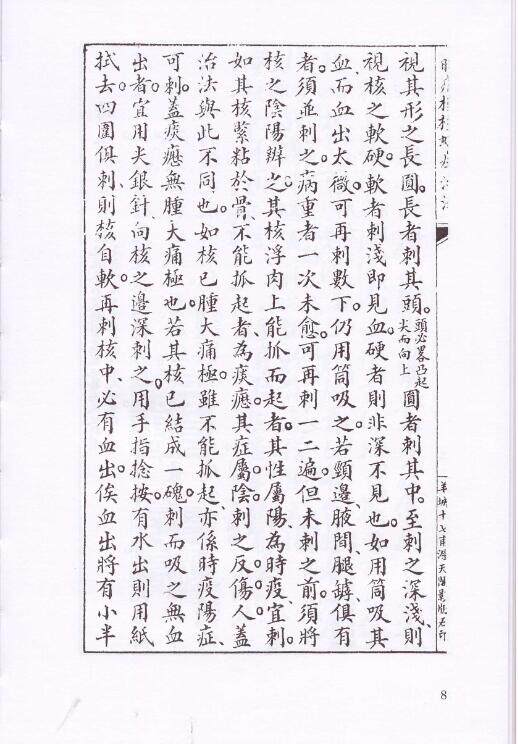 視其形之長圓。長者刺其頭。頭必畧凸起尖而向上圓者刺其中。至刺之深淺、則
視核之軟硬。軟者刺淺即見血硬者則非深不見也。如用筒吸其
血、而血出太微。可再刺數下。仍用筒吸之。若頸邊、腋間、腿罅、俱有
者。須並刺之。病重者一次未愈。可再刺一二遍。但未刺之前、須將
核之陰陽辨之。其核浮肉上、能抓而起者。其性屬陽、為時疫、宜刺。
如其核縈粘於骨、不能抓起者、為痰癧。其症屬陰。刺之反傷人。蓋
治法與此不同也。如核已腫大痛極。雖不能抓起、亦係時疫陽症、
可刺。蓋痰癧無腫大痛極也。若其核已結成一磈。刺而吸之無血
出者。宜用尖銀針向核之邊深刺之。用手指捻按。有水出則用紙
拭去。四圍俱刺、則核自軟。再刺核中、必有血出。俟血出將有小半
8